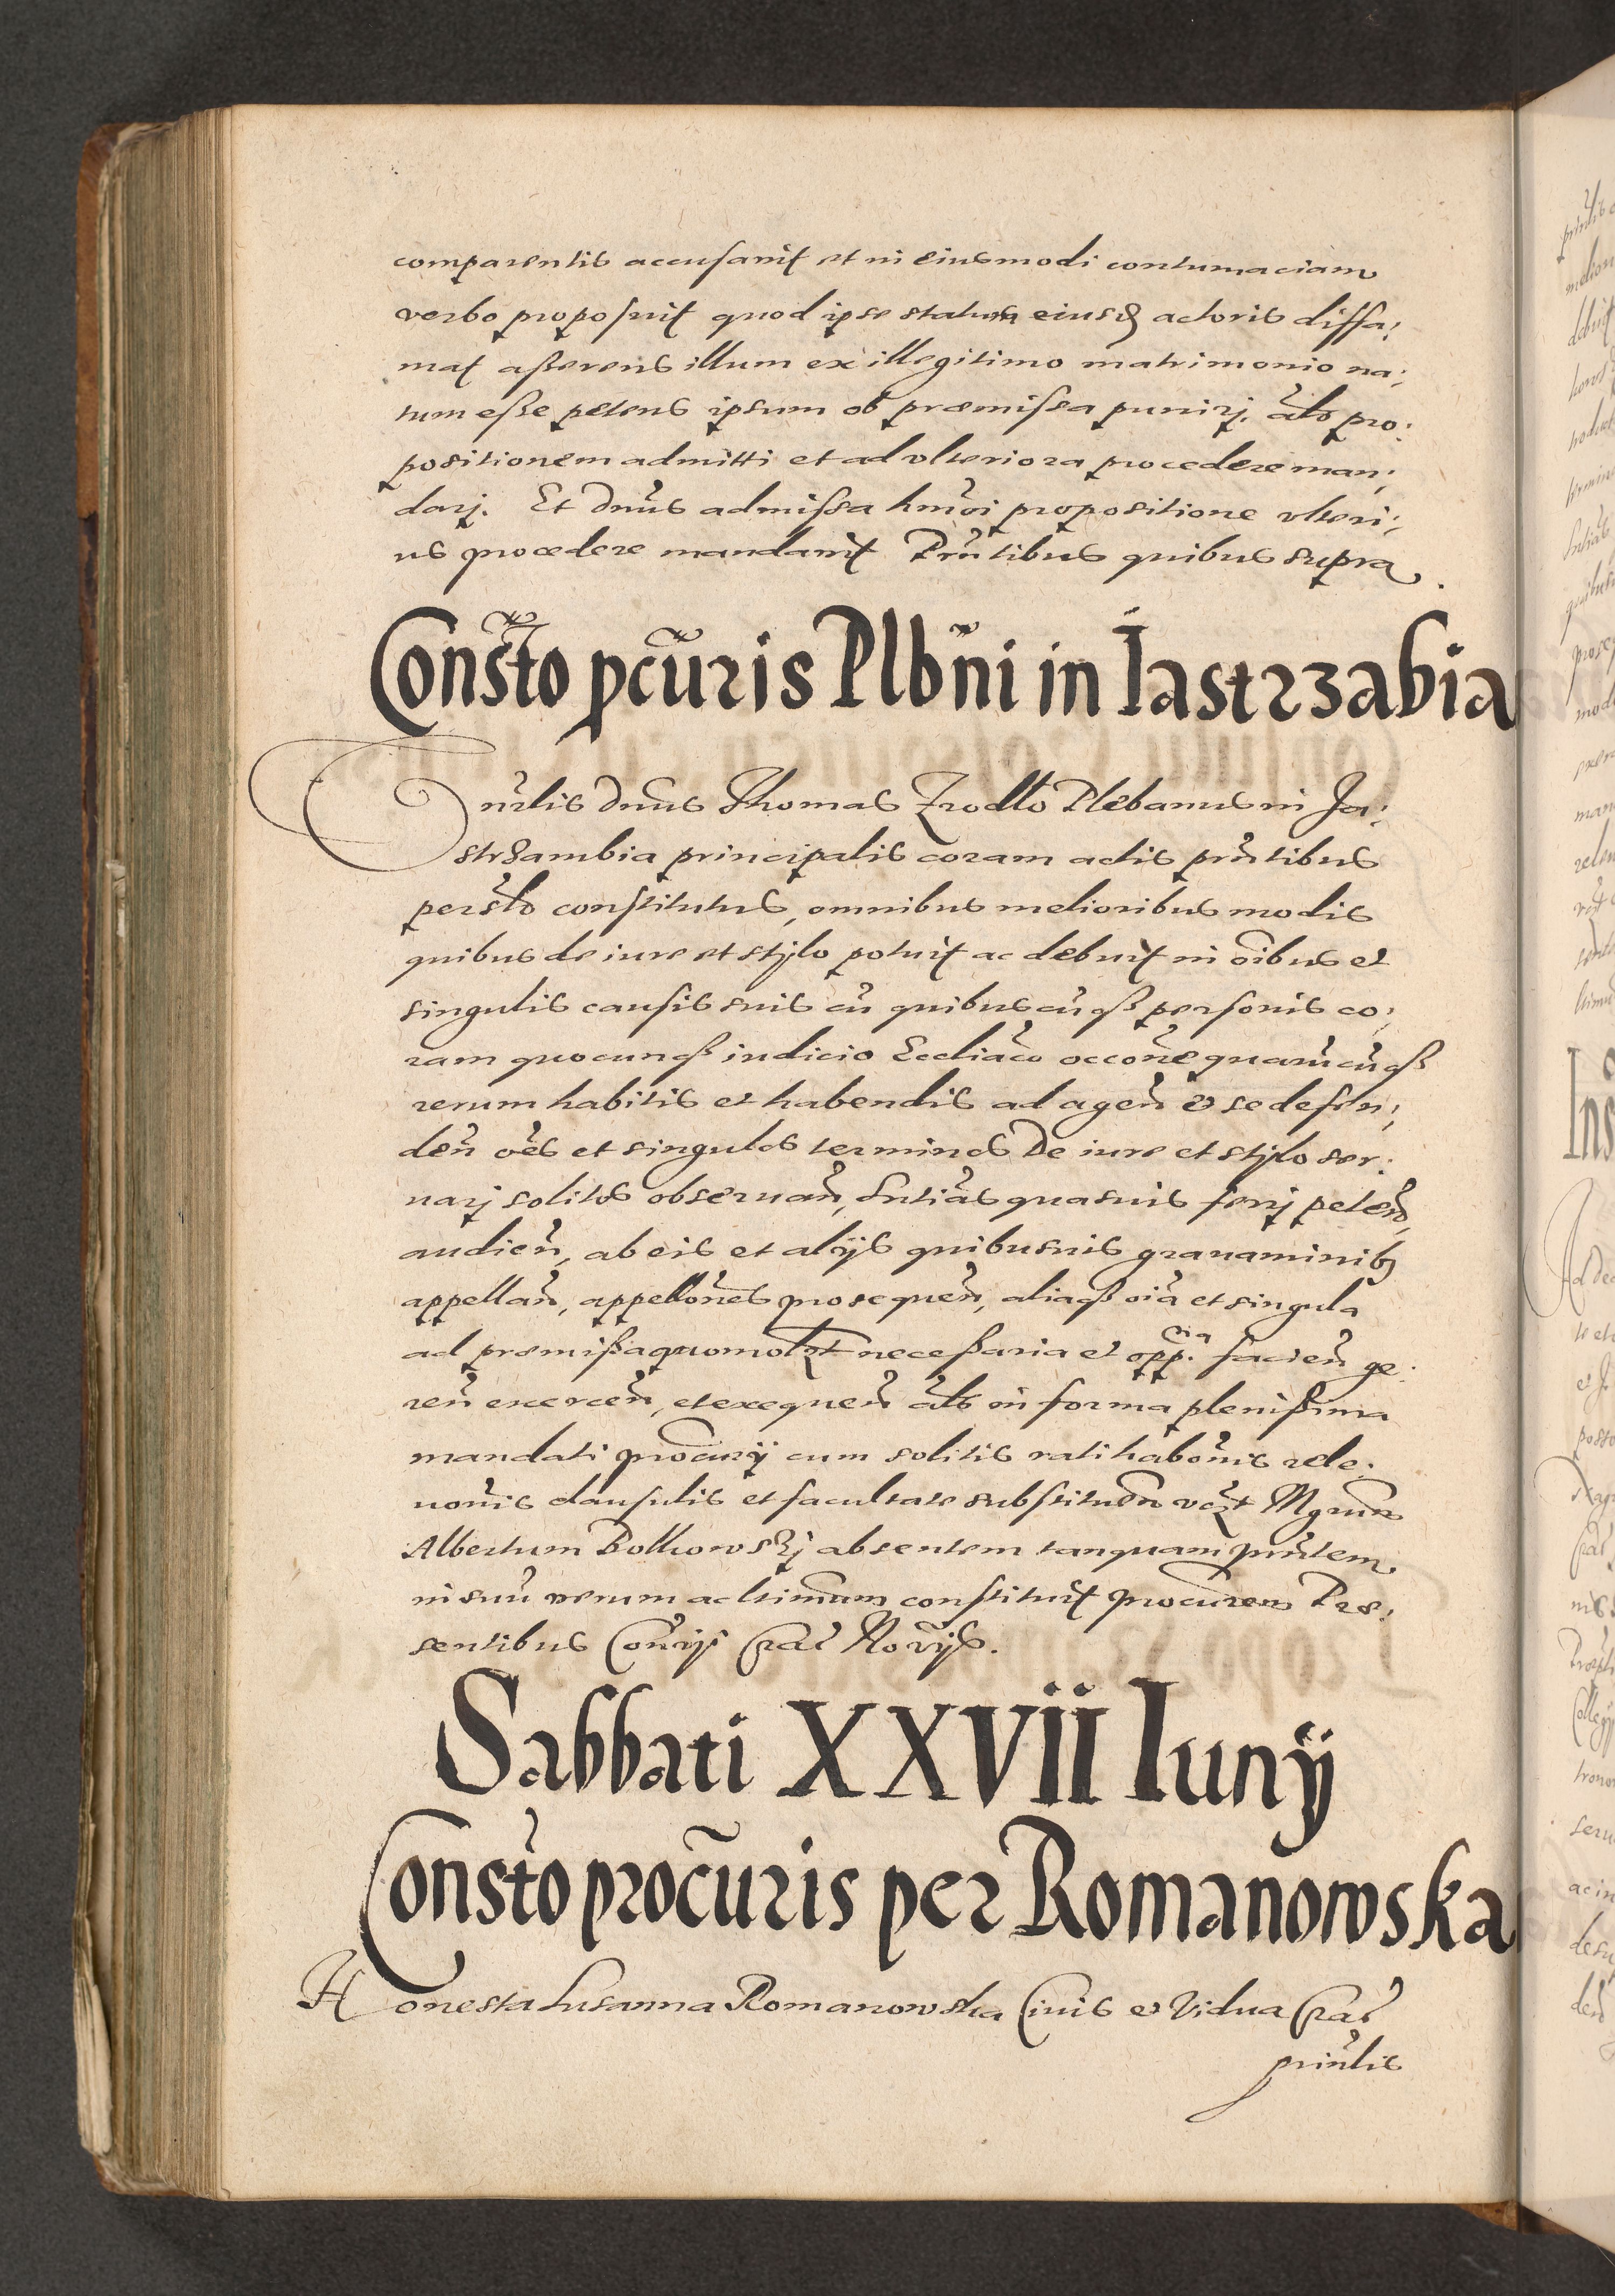 comparentis accusauit et in eiusmodi contumaciam
verbo proposuit quod ipse statum eiusd actoris diffa:
mat asserens illum ex illegitimo matrimonio na:
tum esse petens ipsum ob præmissa punirj, als pro:
positionem admitti et ad vlteriora procedere man:
darj. Et Dnus admissa hmoi propositione vlteri:
us procedere mandauit Prntibus quibus supra.
Consto pcuris Plbni in Iastrzabia
Dnus Thomas Zrodlo Plebanus in Ja:
strzambia principalis coram actis prntibus
persto constitutus, omnibus melioribus modis
quibus de iure et stylo potuit ac debuit in oibus et
singulis causis suis cu quibuscuq personis co:
ram quocunq iudicio Eccliaco occone quarucuq
rerum habitis et habendis ad agen et se defen:
den oes et singulos terminos De iure et stylo ser:
uarj solitos obseruan, sntias quasuis ferrj peten,
audien, ab eis et alijs quibusuis grauaminib
appellan, appellones prosequen, aliasq oia et singula
ad præmissa quomolt necessaria et opp. facien ge:
ren exercen, et exequen als in forma plenissima
mandati procurij cum solitis ratihabonis rele:
uonis clausulis et facultate substituen Mgrum
Albertum Bolkowskj absentem tanquam prntem
in suu verum ac ltimum constituit procurem Pre:
sentibus Cra Norijs.
Sabbati XXVII Iunij
Consto procuris per Romanowska
Honesta Susanna Romanowska Ciuis et Vidua Crac
prinlis